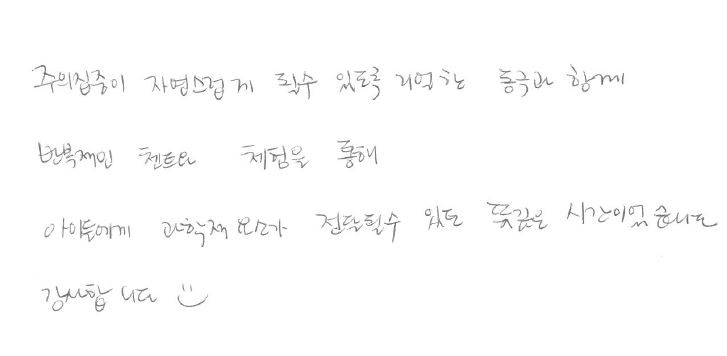 주의집중이 자연스럽게 될수 있도록 기억하는 동극과 함께
반복적인 챈트와 체험을 통해
아이들에게 과학적 요소가 전달될수 있는 뜻깊은 시간이었습니다
감사합니다